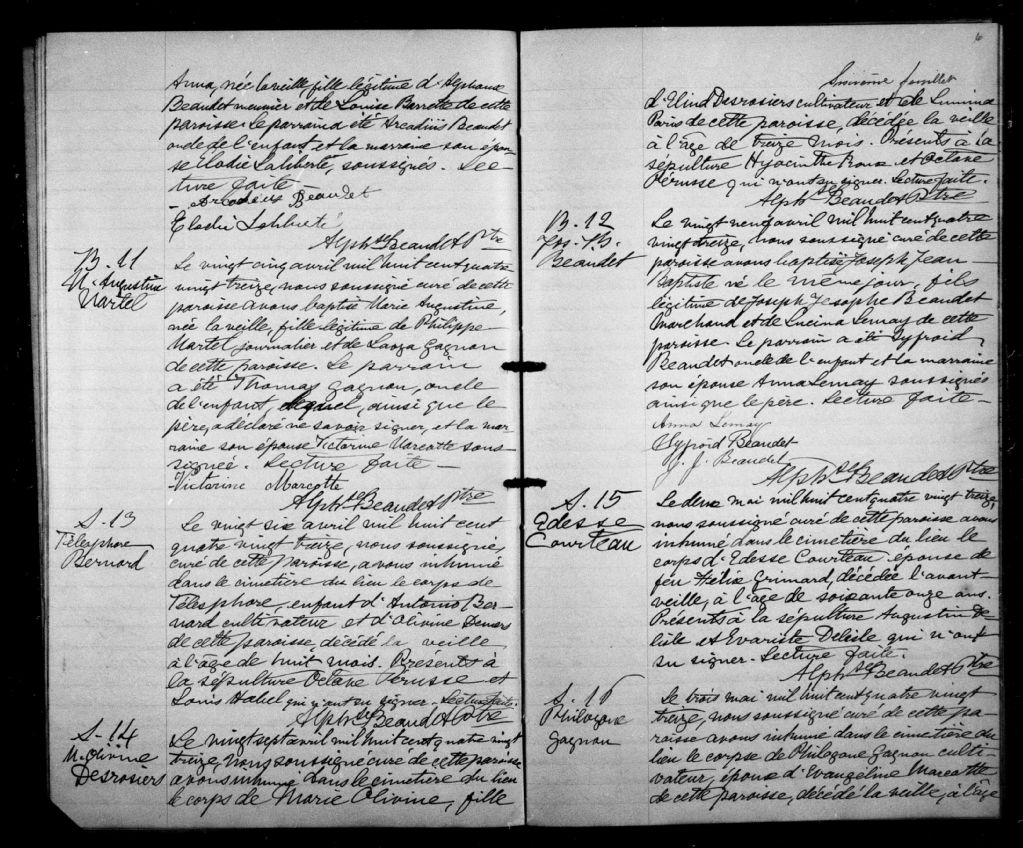 Anna, née la veille, fille légitime d'Alphonse
Beaudet meunier et de Louise Barrette de cette
paroisse. Le parrain a été Arcadius Beaudet
oncle de l'enfant et la marraine son épou-
se Elodie Laliberté, soussignés. Lec-
ture faite.
Arcadius Beaudet
Elodie Laliberté
Alph.se Beaudet Ptre
B. 11
M. Augustine
Martel
Le vingt cinq avril mil huit cent quatre
vingt treize, nous soussigné curé de cette
paroisse avons baptisé Marie Augustine,
née la veille, fille légitime de Philippe
Martel journalier et de Laoza Gagnon
de cette paroisse. Le parrain
a été Thomas Gagnon, oncle
de l'enfant, lequel, ainsi que le
père, a déclaré ne savoir signer, et la mar
raine son épouse Victorine Marcotte sous-
signée. Lecture faite –
Victorine Marcotte
Alph.se Beaudet Ptre
S. 13
Télesphore
Bernard
Le vingt six avril mil huit cent
quatre vingt treize, nous soussigné,
curé de cette paroisse, avons inhumé
dans le cimetière du lieu le corps de
Télesphore, enfant d'Antonio Ber-
nard cultivateur et d'Olivine Demers
de cette paroisse, décédé la veille
à l'âge de huit mois. Présents à
la sépulture Octave Pérusse et
Louis Hamel qui n'ont su signer. Lecture faite.
Alph.se Beaudet Ptre
S. 14
M. Olivine
Desrosiers
Le vingt sept avril mil huit cent quatre vingt
treize, nous soussigné curé de cette paroisse
avons inhumé dans le cimetière du lieu
le corps de Marie Olivine, fille
6
Sixième feuillet
d'Elind Desrosiers cultivateur et de Lumina
Paris de cette paroisse, décédée la veille
à l'âge de treize mois. Présents à la
sépulture Hyacinthe Roux et Octave
Pérusse qui n'ont su signer. Lecture faite.
Alph.se Beaudet Ptre
B. 12
Jos. J. B.
Beaudet
Le vingt neuf avril mil huit cent quatre
vingt treize, nous soussigné curé de cette
paroisse avons baptisé Joseph Jean
Baptiste né le même jour, fils
légitime de Joseph Jesophe Beaudet
Marchand et de Lucina Lemay de cette
paroisse. Le parrain a été Clyfroid
Beaudet oncle de l'enfant et la marraine
son épouse Anna Lemay soussignés
ainsi que le père. Lecture faite –
Anna Lemay
Clyfroid Beaudet
J. J. Beaudet
Alph.se Beaudet Ptre
S. 15
Edesse
Courteau
Le deux mai mil huit cent quatre vingt treize,
nous soussigné curé de cette paroisse avons
inhumé dans le cimetière du lieu le
corps d'Edesse Courteau épouse de
feu Félix Grimard, décédée l'avant-
veille, à l'âge de soixante onze ans.
Présents à la sépulture Augustin De-
lisle et Evariste Delisle qui n'ont
su signer. Lecture faite.
Alph.se Beaudet Ptre
S. 16
Philogone
Gagnon
Le trois mai mil huit cent quatre vingt
treize, nous soussigné curé de cette pa-
roisse avons inhumé dans le cimetière du
lieu le corps de Philogone Gagnon culti-
vateur, époux d'Evangéline Marcotte
de cette paroisse, décédé la veille, à l'âge